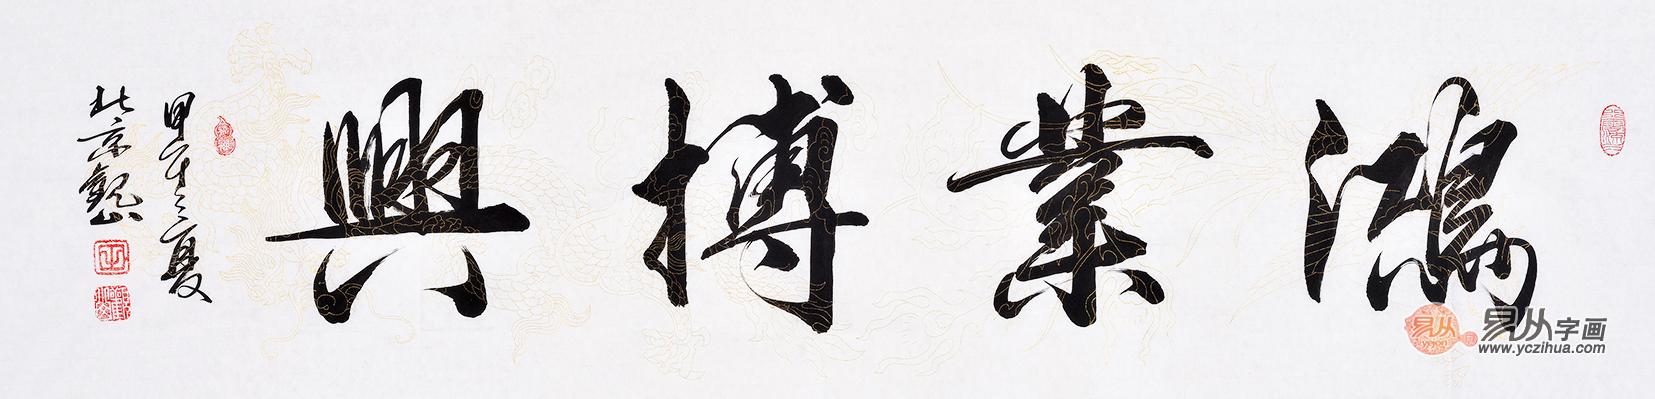 鴻業搏興
甲午之夏
北京觀山
易从
易从字画
www.yczihua.com